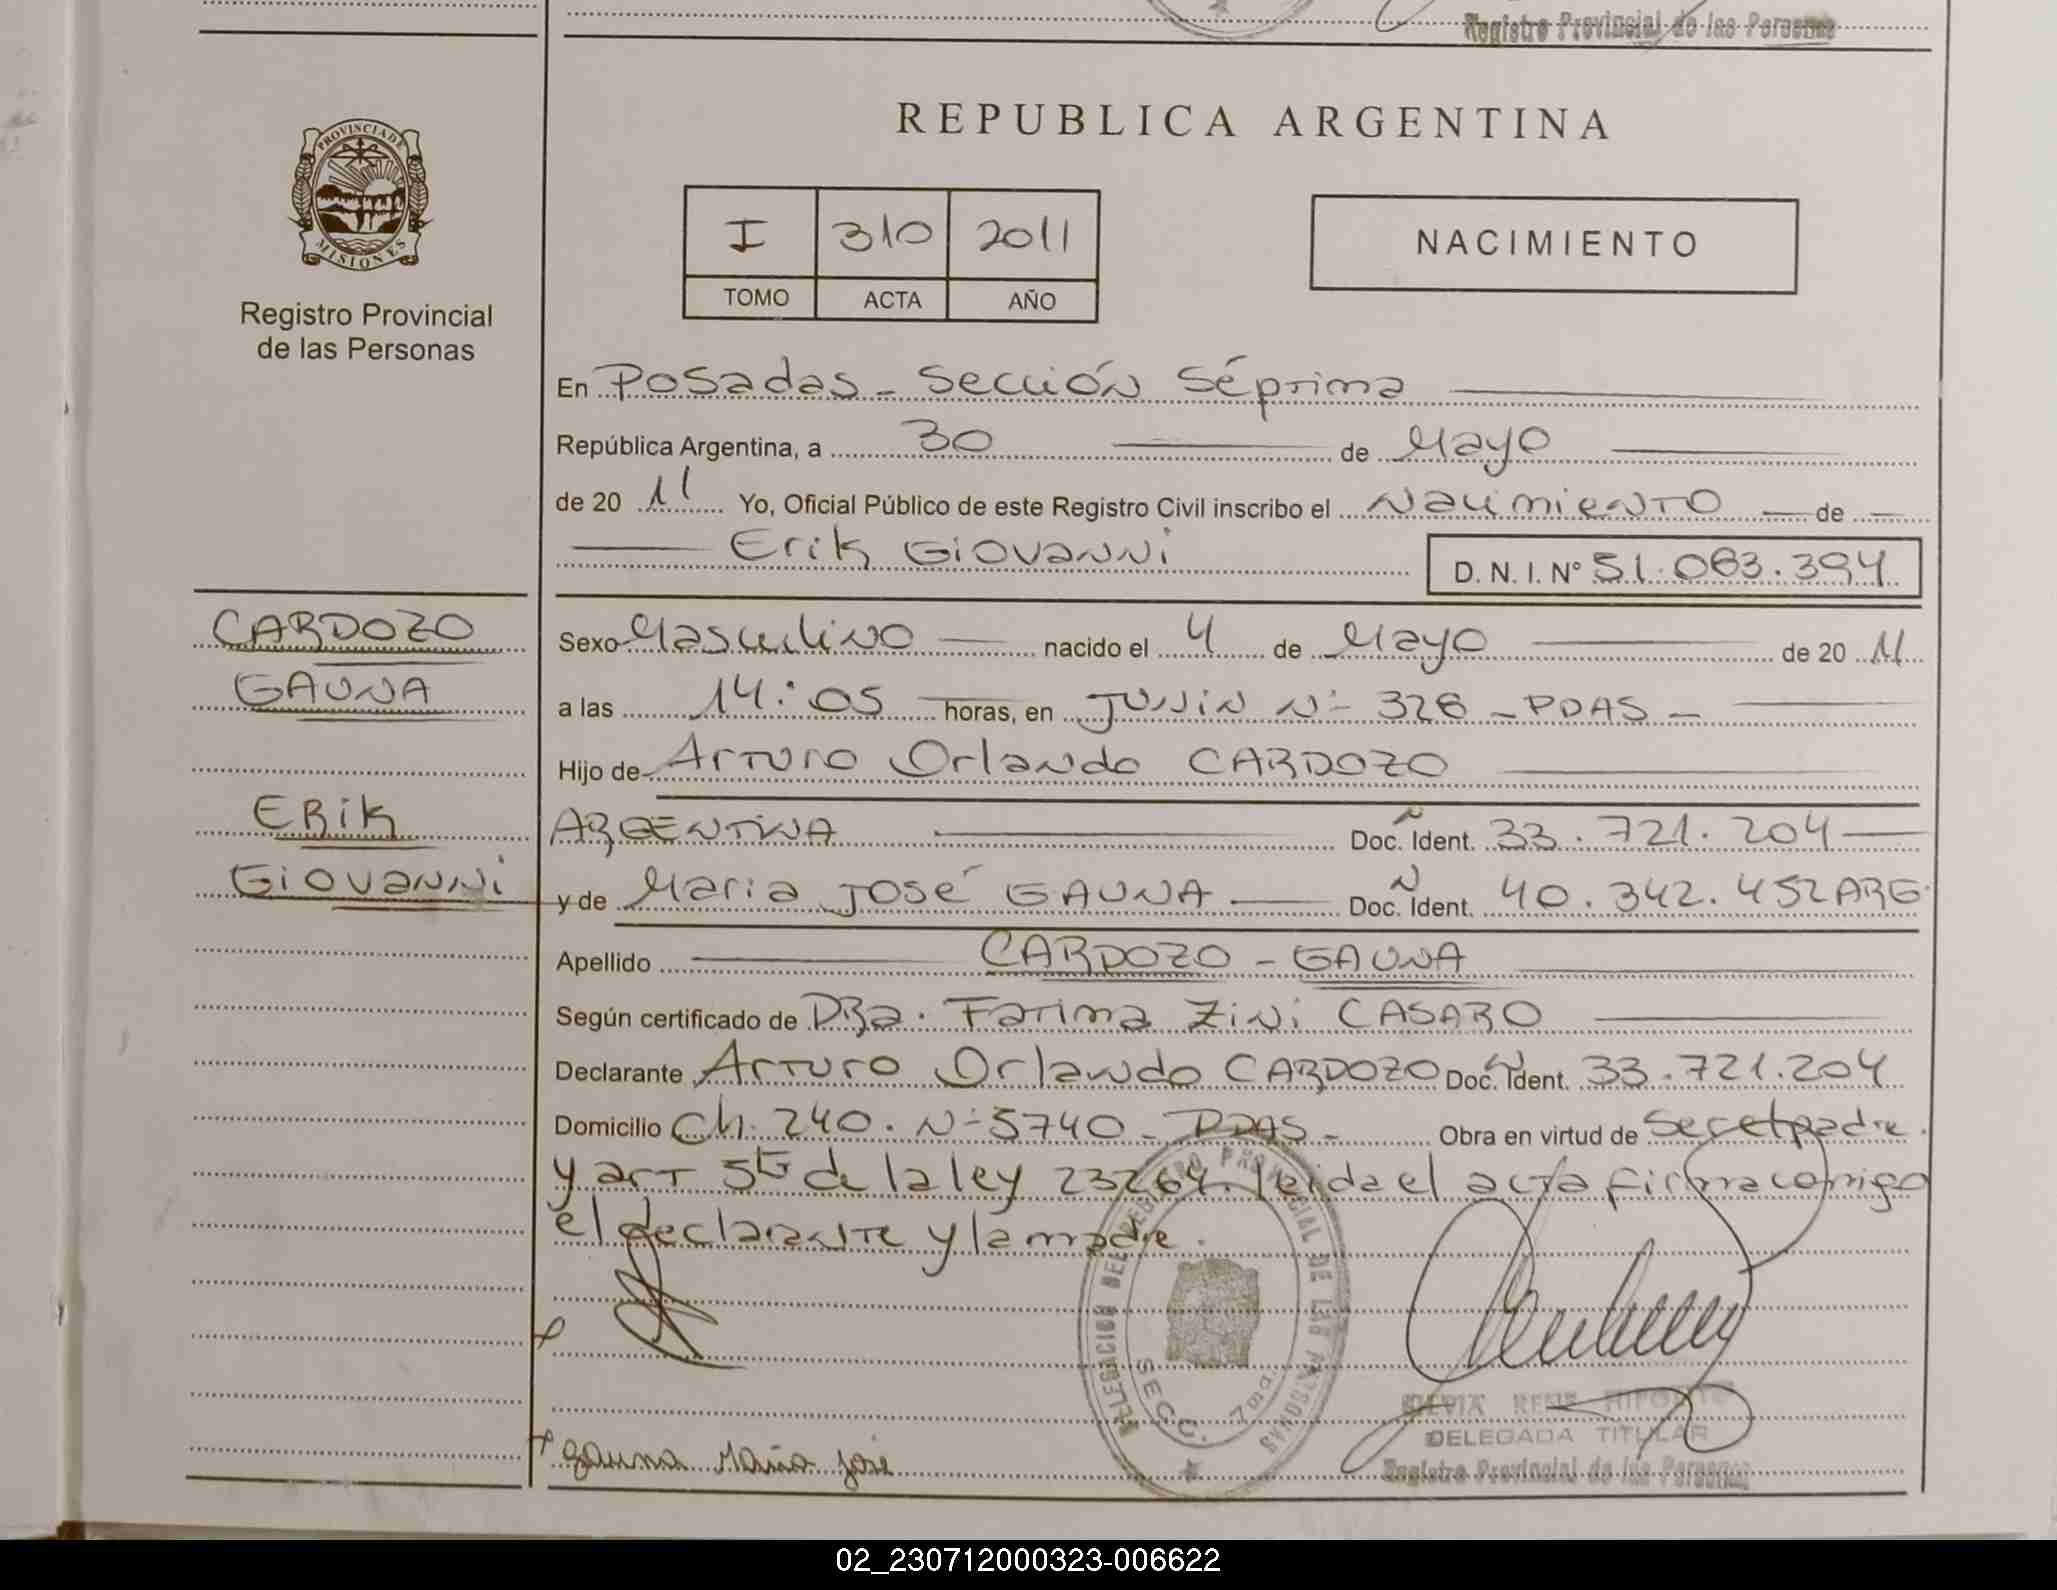 Registro Provincial de las Personas
REPUBLICA ARGENTINA
PROVINCIA DE
MISIONES
Registro Provincial
de las Personas
I 310 2011
TOMO ACTA AÑO
NACIMIENTO
En Posadas - Sección Séptima
República Argentina, a 30 de Mayo
de 20 11 Yo, Oficial Público de este Registro Civil inscribo el Nacimiento de
Erik Giovanni
D. N. I. N° 51.083.394
CARDOZO
GAUNA
ERIK
GIOVANNI
Sexo Masculino nacido el 4 de Mayo de 20 11
a las 14:05 horas, en Junin N° 328 - PDAS -
Hijo de Arturo Orlando CARDOZO
ARGENTINA Doc. Ident. N 33.721.204
y de Maria José GAUNA Doc. Ident. N 40.342.452 ARG
Apellido CARDOZO - GAUNA
Según certificado de Dra. Fatima Zini CASARO
Declarante Arturo Orlando CARDOZO Doc. Ident. N 33.721.204
Domicilio Ch. 240. N° 5740 - PDAS - Obra en virtud de ser el padre
y art 5to de la ley 23264. leida el acta firma conmigo
el declarante y la madre.
DELEGACION DEL REGISTRO PROVINCIAL DE LAS PERSONAS
SECC. 7ma.
DELEGADA TITULAR
Registro Provincial de las Personas
Gauna Maria José
02_230712000323-006622